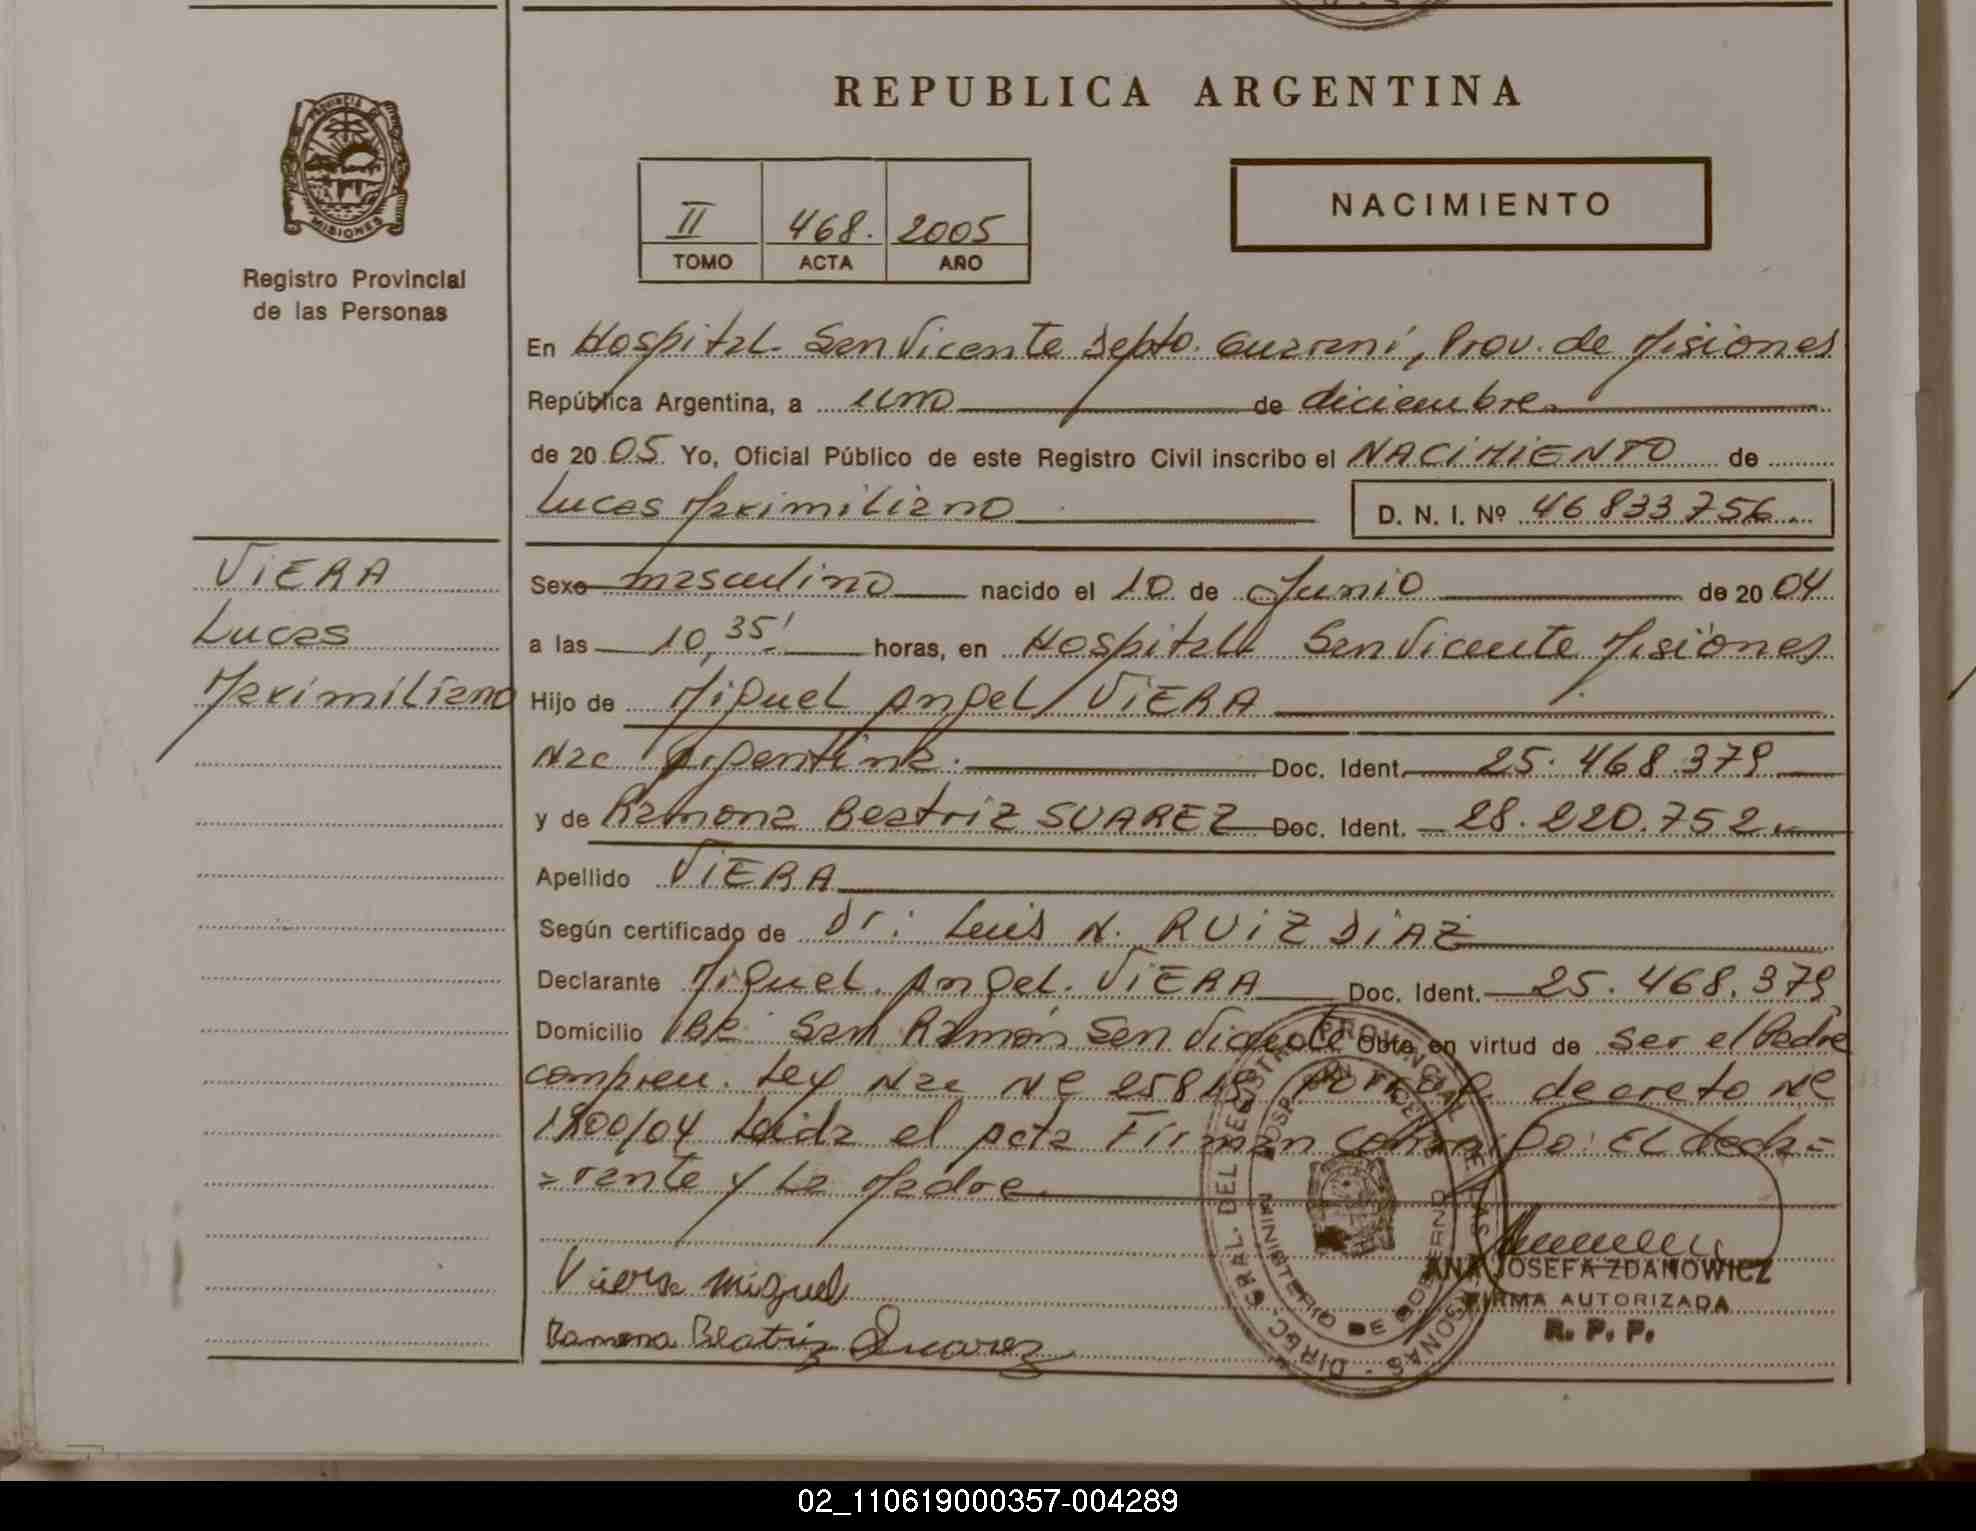 REPUBLICA ARGENTINA
PROVINCIA DE MISIONES
Registro Provincial
de las Personas
II 468. 2005
TOMO ACTA AÑO
NACIMIENTO
En Hospital San Vicente Depto. Guaraní, Prov. de Misiones
República Argentina, a uno de diciembre
de 2005 Yo, Oficial Público de este Registro Civil inscribo el NACIMIENTO de
Lucas Maximiliano D. N. I. Nº 46 833 756
VIERA
Lucas
Maximiliano
Sexo masculino nacido el 10 de Junio de 2004
a las 10,35' horas, en Hospital San Vicente Misiones
Hijo de Miguel Angel VIERA
Nac Argentina. Doc. Ident. 25.468.379
y de Ramona Beatriz SUAREZ Doc. Ident. 28.220.752
Apellido VIERA
Según certificado de Dr: Luis N. RUIZ DIAZ
Declarante Miguel Angel VIERA Doc. Ident. 25.468.379
Domicilio Bº San Ramón San Vicente Obra en virtud de ser el Padre
Ley Nac Nº 25819 decreto Nº
1800/04 Leida el acta Firman conmigo: EL decla=
=rante y La Madre
Viera Miguel
Ramona Beatriz Suarez
DIREC. GRAL. DEL REGISTRO PROVINCIAL DE LAS PERSONAS
HOSP. SAN VICENTE
MINISTERIO DE GOBIERNO
ANA JOSEFA ZDANOWICZ
FIRMA AUTORIZADA
R. P. P.
02_110619000357-004289